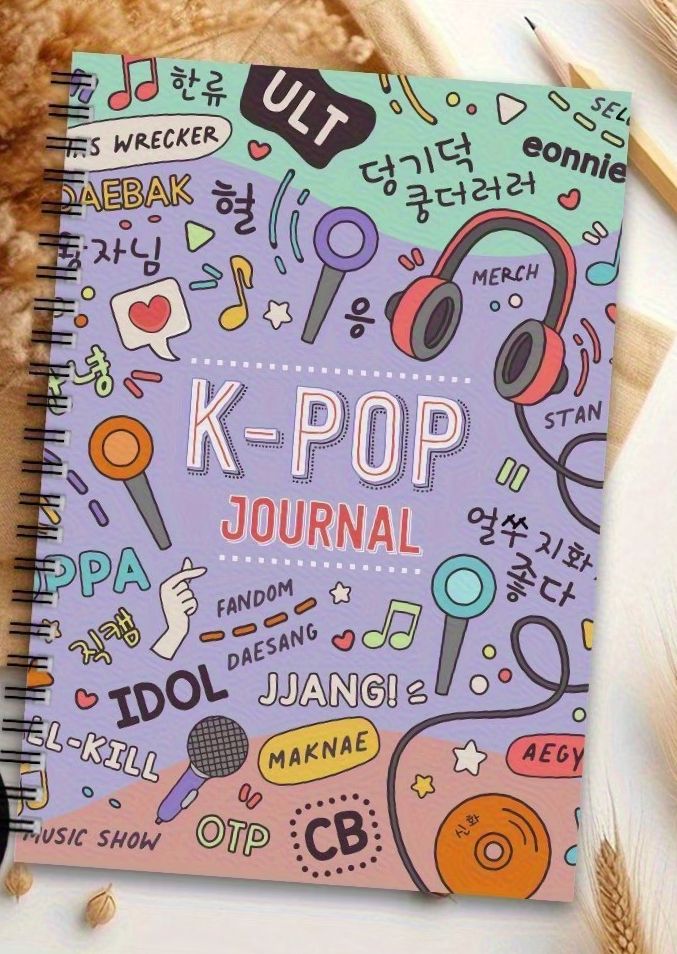 한류
ULT
SEL
WRECKER
eonnie
덩기덕
쿵더러러
DAEBAK
헐
왕자님
MERCH
응
안녕
STAN
K-POP
JOURNAL
얼쑤 지화
좋다
OPPA
FANDOM
직캠
DAESANG
IDOL
JJANG!
LL-KILL
MAKNAE
AEGY
신화
MUSIC SHOW
OTP
CB